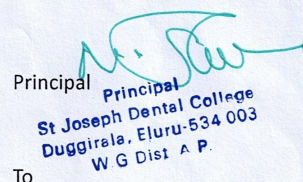 Principal
Principal
St Joseph Dental College
Duggirala, Eluru-534 003
W.G Dist A.P.
To